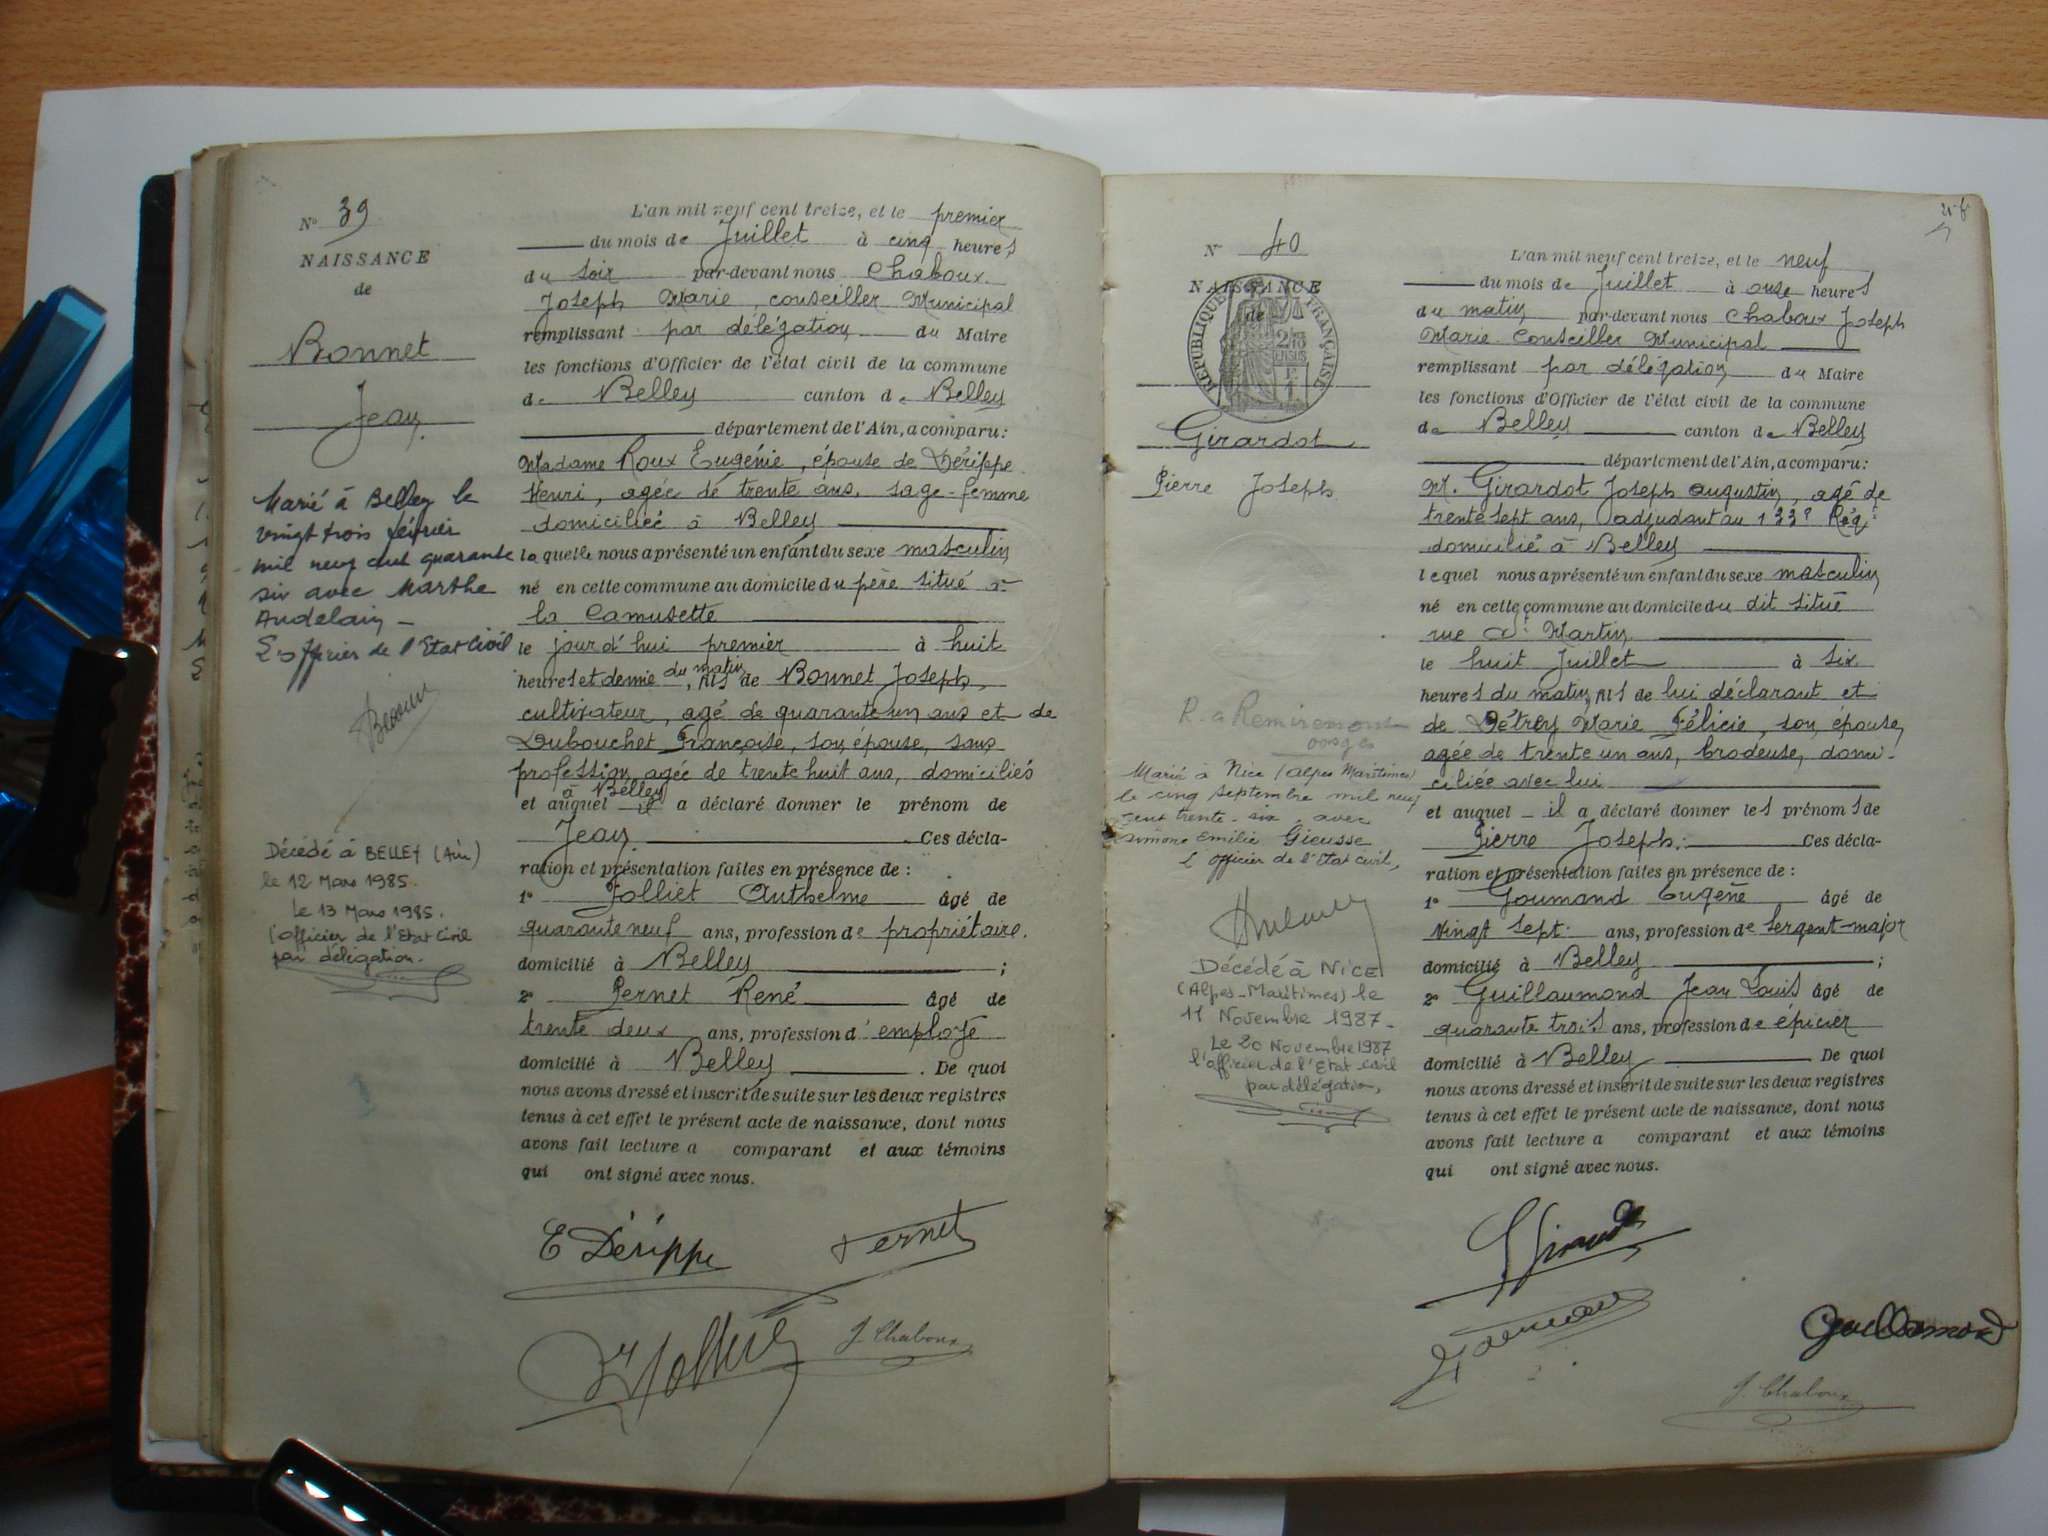 N° 39
NAISSANCE
de
Bonnet
Jean
Marié à Belley le
vingt trois février
mil neuf cent quarante
six avec Marthe
Andelain
L'officier de l'Etat Civil
Décédé à BELLEY (Ain)
le 12 Mars 1985.
Le 13 Mars 1985.
l'officier de l'Etat Civil
par délégation.
L'an mil neuf cent treize, et le premier
du mois de Juillet à cinq heures
du soir par-devant nous Chaboux
Joseph Marie, conseiller Municipal
remplissant par délégation du Maire
les fonctions d'Officier de l'état civil de la commune
de Belley canton de Belley
département de l'Ain, a comparu:
Madame Roux Eugénie, épouse de Dérippe
Henri, agée de trente ans, sage-femme
domiciliée à Belley
laquelle nous a présenté un enfant du sexe masculin
né en cette commune au domicile du père situé à
la Camusette
le jourd'hui premier à huit
heures et demie du matin, fils de Bonnet Joseph,
cultivateur, agé de quarante un ans et de
Dubouchet Françoise, son épouse, sans
profession, agée de trente huit ans, domiciliés
à Belley
et auquel il a déclaré donner le prénom de
Jean Ces décla-
ration et présentation faites en présence de :
1° Jolliet Anthelme âgé de
quarante neuf ans, profession de propriétaire.
domicilié à Belley ;
2° Pernet René âgé de
trente deux ans, profession d'employé
domicilié à Belley . De quoi
nous avons dressé et inscrit de suite sur les deux registres
tenus à cet effet le présent acte de naissance, dont nous
avons fait lecture a comparant et aux témoins
qui ont signé avec nous.
E Dérippe Pernet
J. Chaboux
N° 40
NAISSANCE
de
RÉPUBLIQUE FRANÇAISE
Girardot
Pierre Joseph
R. a Remiremont
vosges
Marié à Nice (Alpes Maritimes)
le cinq septembre mil neuf
cent trente-six, avec
Simone Emilie Gieusse
L'officier de l'Etat civil,
Décédé à NICE
(Alpes-Maritimes) le
11 Novembre 1987-
Le 20 Novembre 1987
l'officier de l'Etat civil
par délégation,
L'an mil neuf cent treize, et le neuf
du mois de Juillet à onze heures
du matin par-devant nous Chaboux Joseph
Marie Conseiller Municipal
remplissant par délégation du Maire
les fonctions d'Officier de l'état civil de la commune
de Belley canton de Belley
département de l'Ain, a comparu:
M. Girardot Joseph Augustin, agé de
trente sept ans, adjudant au 133e Rég.
domicilié à Belley
lequel nous a présenté un enfant du sexe masculin
né en cette commune au domicile du dit situé
rue St Martin
le huit Juillet à six
heures du matin, fils de lui déclarant et
de Détrey Marie Félicie, son épouse,
agée de trente un ans, brodeuse, domi-
ciliée avec lui
et auquel il a déclaré donner les prénoms de
Pierre Joseph. Ces décla-
ration et présentation faites en présence de :
1° Goumand Eugène âgé de
vingt sept ans, profession de sergent-major
domicilié à Belley ;
2° Guillaumond Jean Louis âgé de
quarante trois ans, profession de épicier
domicilié à Belley De quoi
nous avons dressé et inscrit de suite sur les deux registres
tenus à cet effet le présent acte de naissance, dont nous
avons fait lecture a comparant et aux témoins
qui ont signé avec nous.
Guillaumond
J. Chaboux